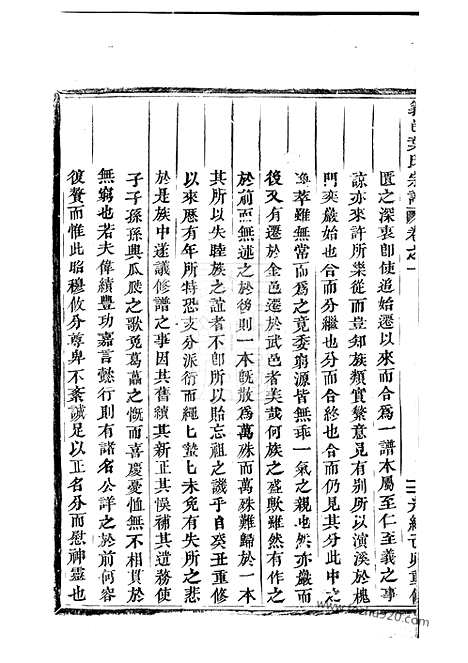 義邑葉氏宗譜 卷之一
光緒己卯重修
匱之深衷即使追始遷以來而合爲一譜本屬至仁至義之事
諒亦來許所樂從而豈知族類實繁意見有別所以濵溪於槐
門奕嚴始也合而分繼也分而合終也合而仍見其分此中之
萃雖無常而爲之竟委窮源皆無乖一氣之親也然亦嚴而
後又有遷於金邑遷於武邑者美哉何族之盛歟雖然有作之
於前而無述之於後則一本旣散爲萬殊而萬殊難歸於一本
其所以失睦族之誼者不卽所以貽忘祖之譏乎自癸丑重修
以來歷有年所特恐支分派衍而繩之蟄蟄未免有失所之悲
於是族中遂議修譜之事因其舊續其新正其悞補其遺務使
子子孫孫興瓜瓞之歌免葛藟之慨而喜慶憂恤無不相貫於
無窮也若夫偉績豐功嘉言懿行則有諸名公詳之於前何容
復贅而惟此昭穆攸分尊卑不紊誠足以正名分而慰神靈也
www.fozhu920.com